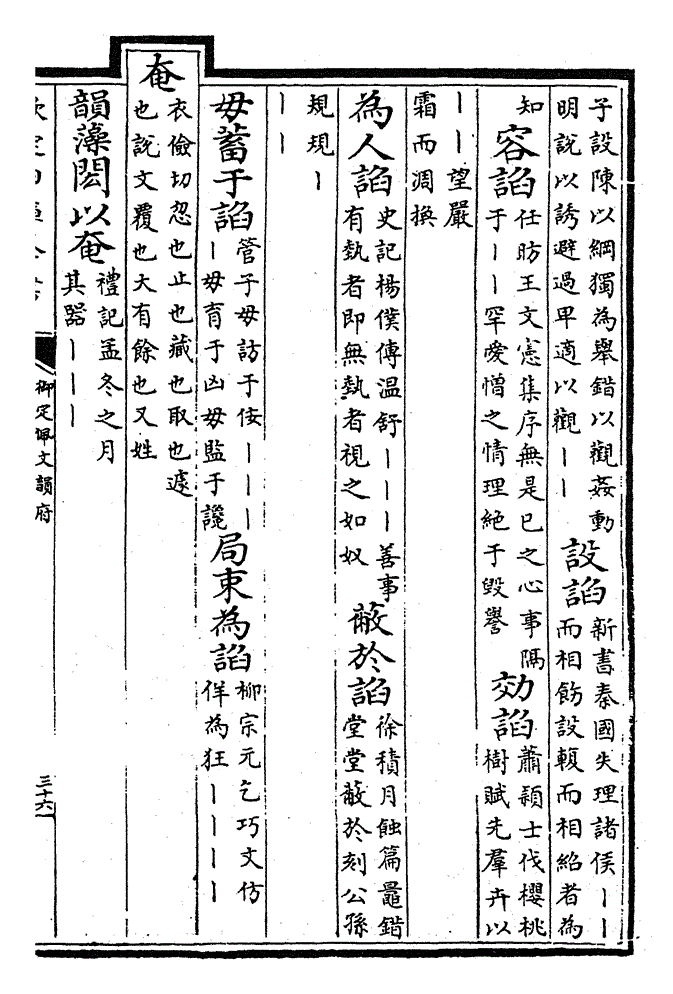 子設陳以綱獨為舉錯以觀姦動
明說以誘避過卑適以觀丨丨
設諂
新書秦國失理諸侯丨丨
而相飭設輹而相紹者為
知
容諂
任昉王文憲集序無是已之心事隔
于丨丨罕愛憎之情理絶于毀譽
効諂
蕭穎士伐櫻桃
樹賦先羣卉以
丨丨望嚴
霜而凋換
為人諂
史記楊僕傳温舒丨丨丨善事
有埶者即無埶者視之如奴
蔽於諂
徐積月蝕篇鼂錯
堂堂蔽於刻公孫
規規丨
丨丨
毋蓄于諂
管子毋訪于佞丨丨丨
丨毋育于凶毋監于讒
局束為諂
柳宗元乞巧文仿
佯為狂丨丨丨丨
奄
衣儉切忽也止也藏也取也遽
也說文覆也大有餘也又姓
韻藻閎以奄
禮記孟冬之月
其器丨丨丨
御定佩文韻府
三十六